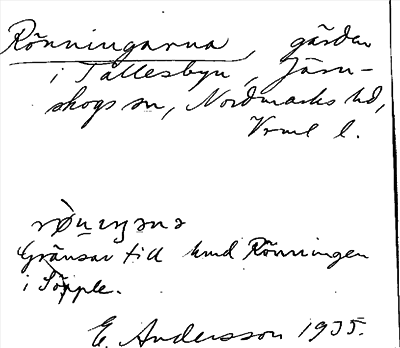 Rönningarna, gården
i Tallesbyn, Järn-
skogs sn, Nordmarks hd,
Vrml l.
Gränsar till hmd Rönningen
i Söpple.
E. Andersson 1935.